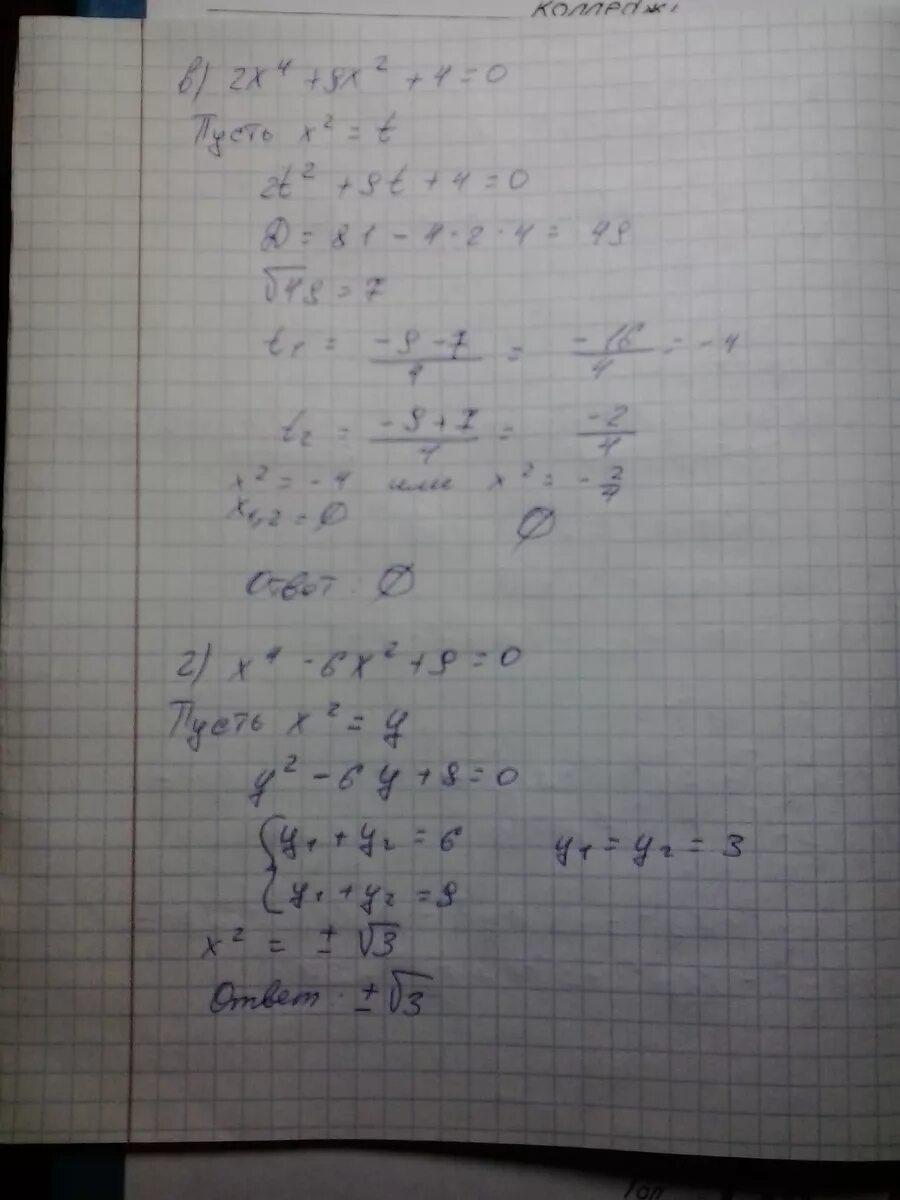 Колледж
в) 2x⁴ + 9x² + 4 = 0
Пусть x² = t
2t² + 9t + 4 = 0
D = 81 - 4 · 2 · 4 = 49
√49 = 7
t₁ = (-9 - 7)/4 = -16/4 = -4
t₂ = (-9 + 7)/4 = -2/4
x² = -4 или x² = -2/4
x₁,₂ = ∅ ∅
Ответ: ∅
г) x⁴ - 6x² + 9 = 0
Пусть x² = y
y² - 6y + 9 = 0
{ y₁ + y₂ = 6 y₁ = y₂ = 3
{ y₁ + y₂ = 9
x² = ± √3
Ответ: ± √3